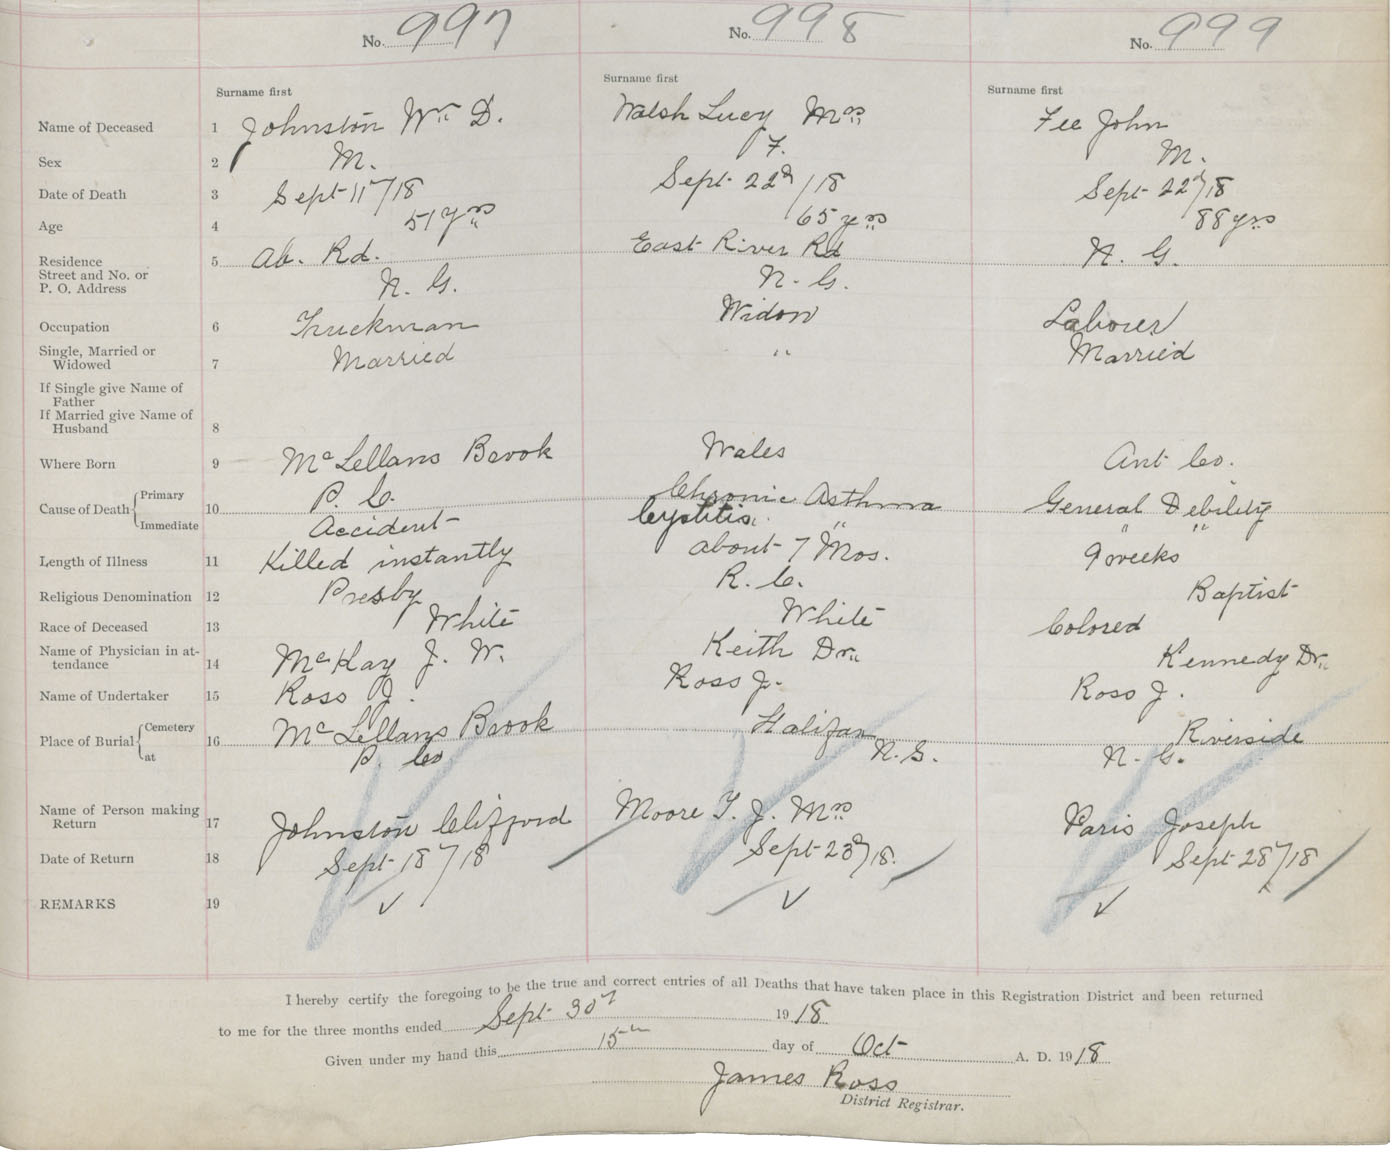 No. 997 No. 998 No. 999
Surname first Surname first Surname first
Name of Deceased 1 Johnston Wm D. Walsh Lucy Mrs Fee John
Sex 2 M. F. M.
Date of Death 3 Sept 11th/18 Sept 22d/18 Sept 22d/18
Age 4 51 yrs 65 yrs 88 yrs
Residence 5 Ab. Rd. East River Rd N. G.
Street and No. or
P. O. Address N. G. N. G.
Occupation 6 Truckman Widow Laborer
Single, Married or
Widowed 7 Married " Married
If Single give Name of
Father
If Married give Name of
Husband 8
Where Born 9 McLellans Brook Wales Ant Co.
Cause of Death { Primary 10 P. C. Chronic Asthma General Debility
Immediate Accident Cystitis " " "
Length of Illness 11 Killed instantly about 7 Mos. 9 weeks
Religious Denomination 12 Presby R. C. Baptist
Race of Deceased 13 White White Colored
Name of Physician in at-
tendance 14 McKay J. W. Keith Dr. Kennedy Dr.
Name of Undertaker 15 Ross J. Ross J. Ross J.
Place of Burial { Cemetery 16 McLellans Brook Halifax Riverside
at P. Co N. S. N. G.
Name of Person making
Return 17 Johnston Clifford Moore T. J. Mrs Paris Joseph
Date of Return 18 Sept 18th/18 Sept 23d/18. Sept 28th/18
REMARKS 19 ✓ ✓ ✓
I hereby certify the foregoing to be the true and correct entries of all Deaths that have taken place in this Registration District and been returned
to me for the three months ended Sept 30th 1918
Given under my hand this 15th day of Oct A. D. 1918
James Ross
District Registrar.